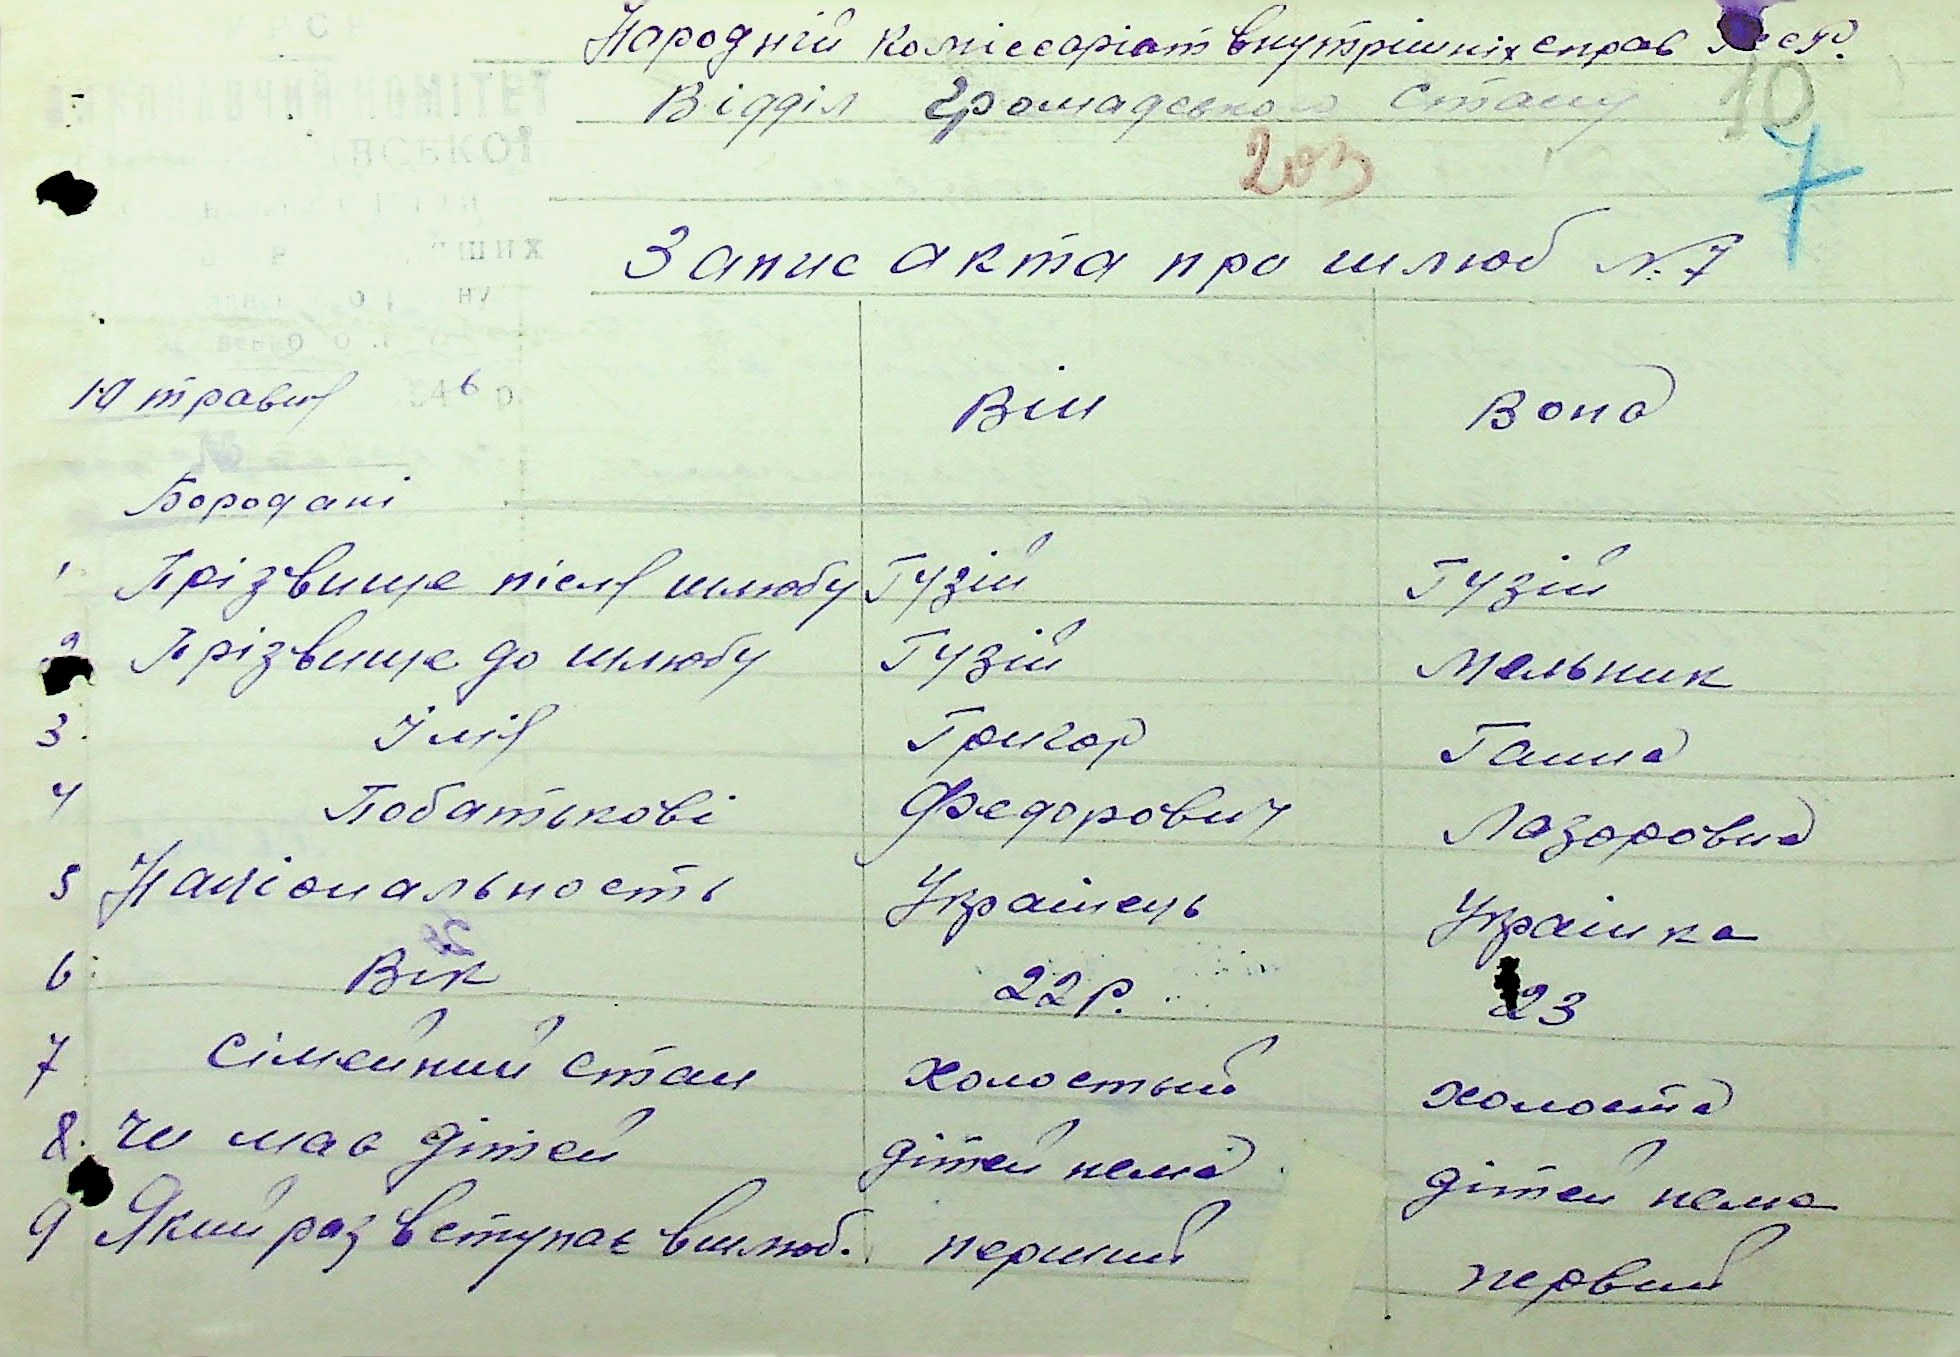 Народній комісєаріат внутрішніх справ
Відділ громадського стану 10
203 7
Запис акта про шлюб №7
10 травня 46 р. Він Вона
Бородані
1 Прізвище після шлюбу Гузій Гузій
2 Прізвище до шлюбу Гузій Мельник
3. Імія Григор Ганна
4 Побатькові Федорович Лазоровна
5 Національность Українець Українка
6. Вік 22р. 23
7 Сімейний стан холостый холоста
8. Чи має дітей дітей нема дітей нема
9 Який раз вступає вшлюб. перший первий